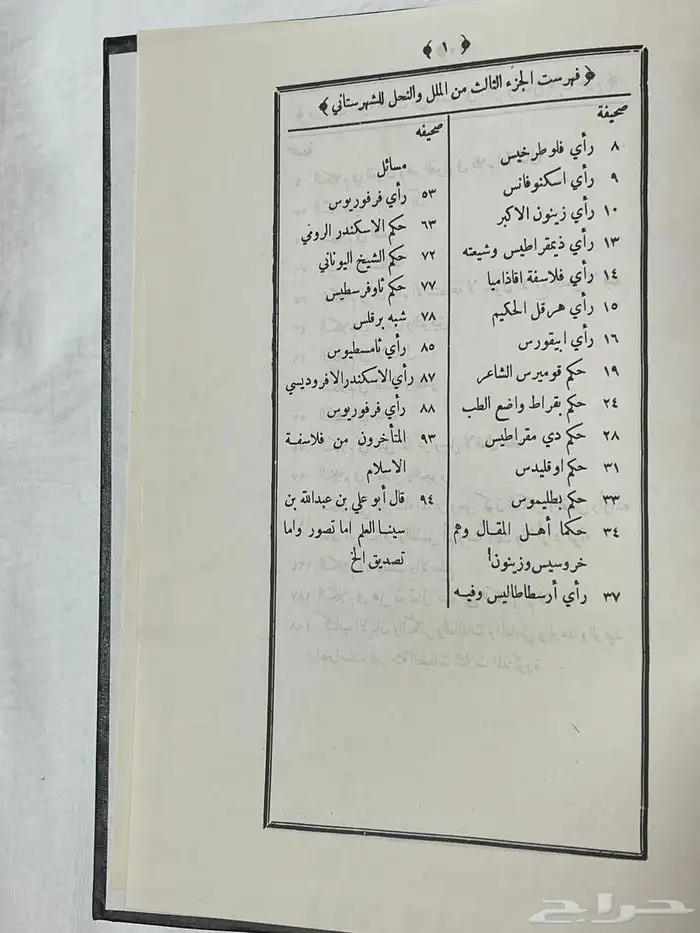 ﴿ ١ ﴾
﴿ فهرست الجزء الثالث من الملل والنحل للشهرستاني ﴾
صحيفة
٨ رأي فلوطرخيس
٩ رأي اسكنوفانس
١٠ رأي زينون الاكبر
١٣ رأي ذيمقراطيس وشيعته
١٤ رأي فلاسفة اقاذاميا
١٥ رأي هرقل الحكيم
١٦ رأي ابيقورس
١٩ حكم قوميرس الشاعر
٢٤ حكم بقراط واضع الطب
٢٨ حكم دي مقراطيس
٣١ حكم اوقليدس
٣٣ حكم بطليموس
٣٤ حكما أهل المقال وهم
خروسيس وزينون!
٣٧ رأي أرسطاطاليس وفيه
صحيفه
مسائل
٥٣ رأي فرفوريوس
٦٣ حكم الاسكندر الرومي
٧٢ حكم الشيخ اليوناني
٧٧ حكم ثاوفرسطيس
٧٨ شبه برقلس
٨٥ رأي ثامسطيوس
٨٧ رأي الاسكندر الافروديسي
٨٨ رأي فرفوريوس
٩٣ المتأخرون من فلاسفة
الاسلام
٩٤ قال أبو علي بن عبدالله بن
سينا العلم اما تصور واما
تصديق الخ
حراج